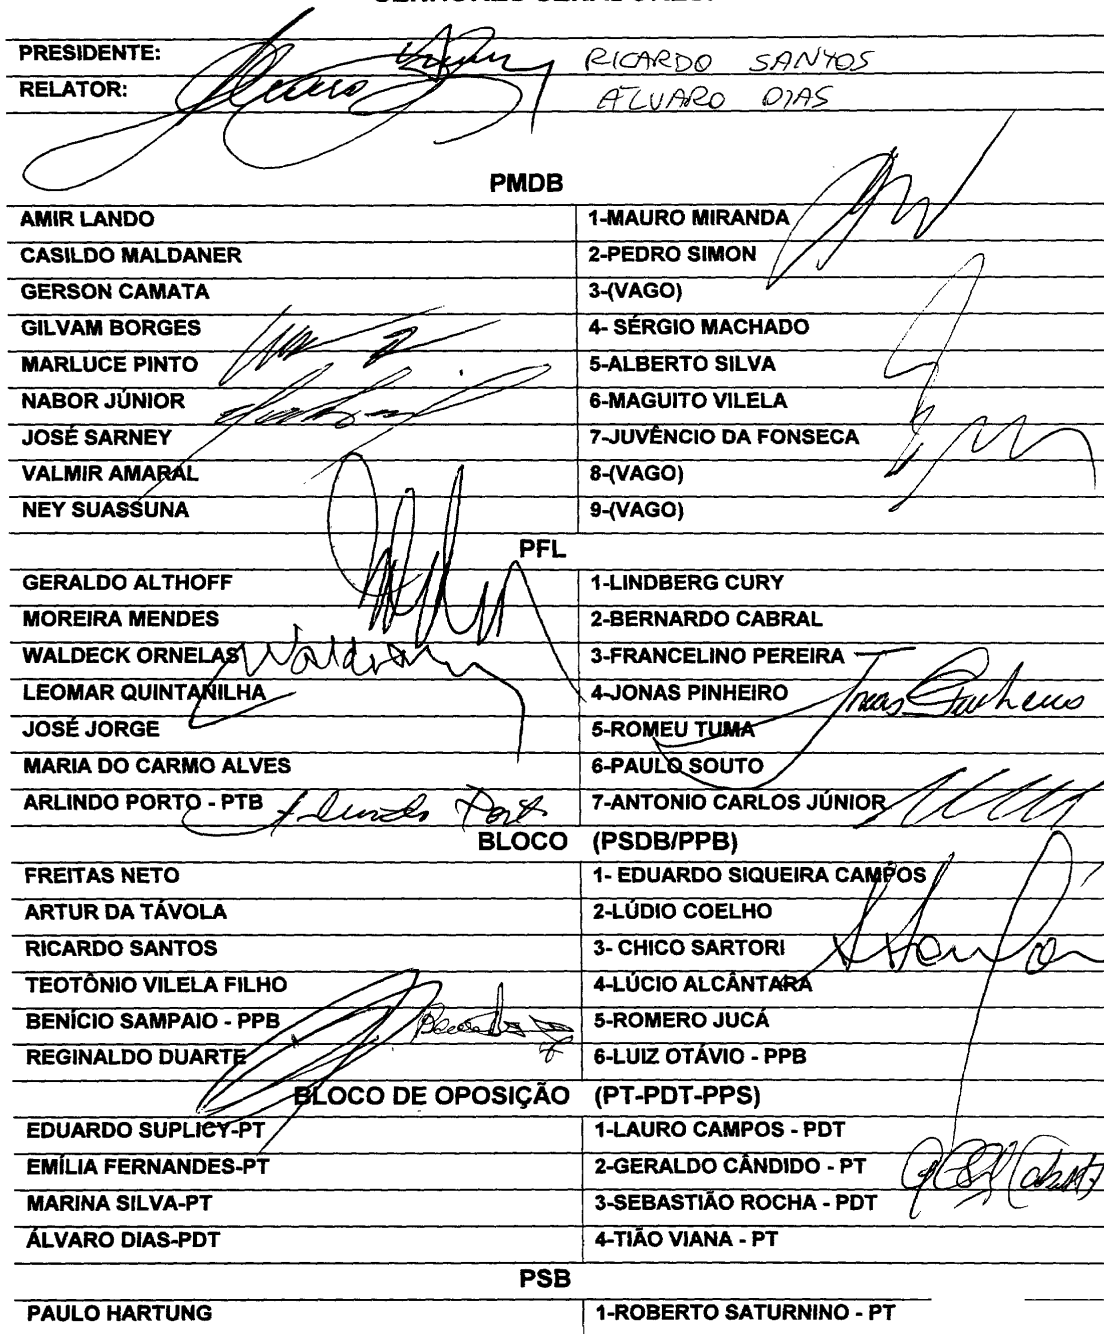 PRESIDENTE: RICARDO SANTOS
RELATOR: ÁLVARO DIAS
PMDB
AMIR LANDO 1-MAURO MIRANDA
CASILDO MALDANER 2-PEDRO SIMON
GERSON CAMATA 3-(VAGO)
GILVAM BORGES 4- SÉRGIO MACHADO
MARLUCE PINTO 5-ALBERTO SILVA
NABOR JÚNIOR 6-MAGUITO VILELA
JOSÉ SARNEY 7-JUVÊNCIO DA FONSECA
VALMIR AMARAL 8-(VAGO)
NEY SUASSUNA 9-(VAGO)
PFL
GERALDO ALTHOFF 1-LINDBERG CURY
MOREIRA MENDES 2-BERNARDO CABRAL
WALDECK ORNELAS 3-FRANCELINO PEREIRA
LEOMAR QUINTANILHA 4-JONAS PINHEIRO Jonas Pinheiro
JOSÉ JORGE 5-ROMEU TUMA
MARIA DO CARMO ALVES 6-PAULO SOUTO
ARLINDO PORTO - PTB Arlindo Porto 7-ANTONIO CARLOS JÚNIOR
BLOCO (PSDB/PPB)
FREITAS NETO 1- EDUARDO SIQUEIRA CAMPOS
ARTUR DA TÁVOLA 2-LÚDIO COELHO
RICARDO SANTOS 3- CHICO SARTORI
TEOTÔNIO VILELA FILHO 4-LÚCIO ALCÂNTARA
BENÍCIO SAMPAIO - PPB 5-ROMERO JUCÁ
REGINALDO DUARTE 6-LUIZ OTÁVIO - PPB
BLOCO DE OPOSIÇÃO (PT-PDT-PPS)
EDUARDO SUPLICY-PT 1-LAURO CAMPOS - PDT
EMÍLIA FERNANDES-PT 2-GERALDO CÂNDIDO - PT
MARINA SILVA-PT 3-SEBASTIÃO ROCHA - PDT
ÁLVARO DIAS-PDT 4-TIÃO VIANA - PT
PSB
PAULO HARTUNG 1-ROBERTO SATURNINO - PT